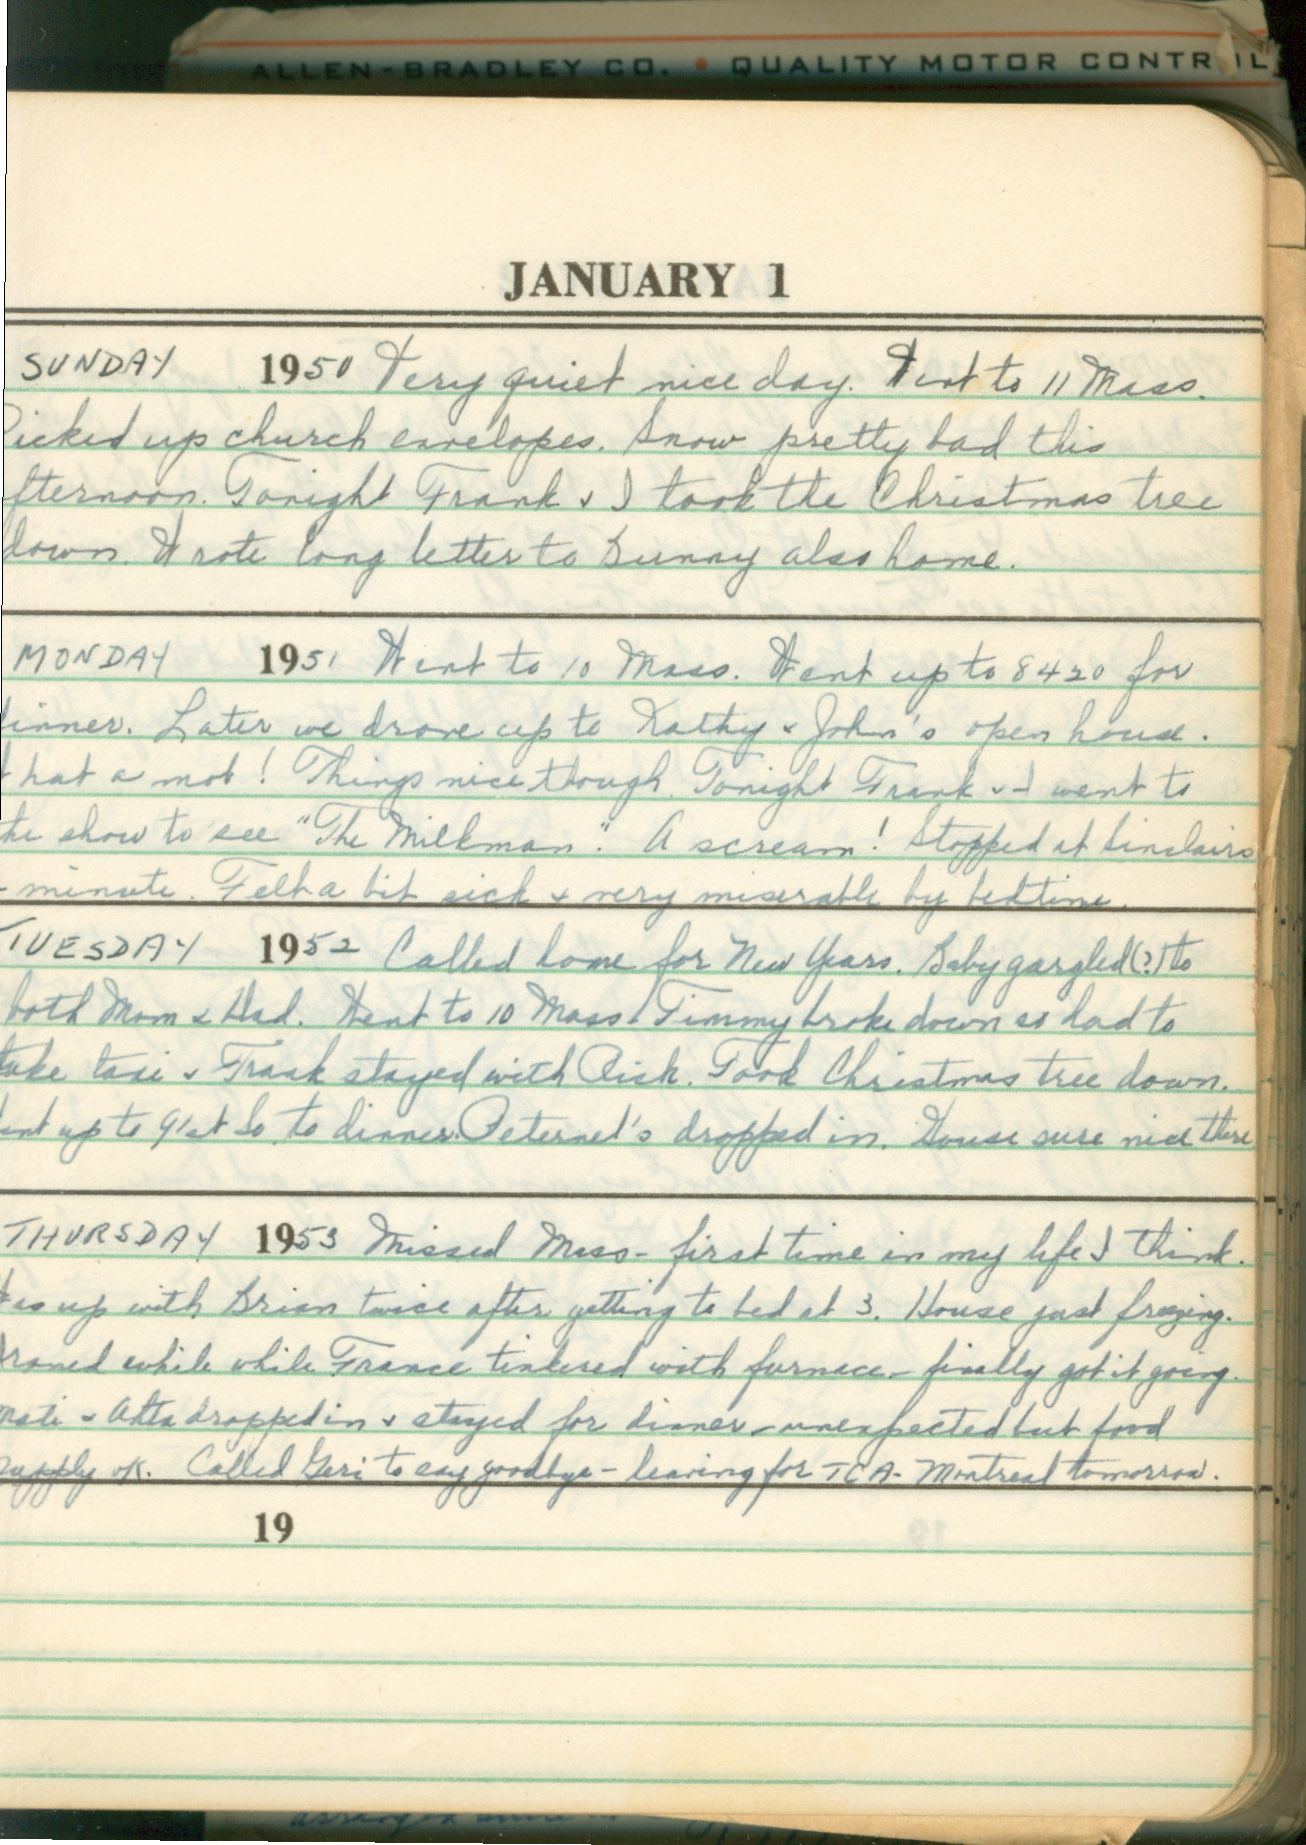 ALLEN-BRADLEY CO. • QUALITY MOTOR CONTROL
JANUARY 1
SUNDAY 1950 Very quiet nice day. Went to 11 Mass.
Picked up church envelopes. Snow pretty bad this
fternoon. Tonight Frank & I took the Christmas tree
down. Wrote long letter to Bunny also home.
MONDAY 1951 Went to 10 Mass. Went up to 8420 for
dinner. Later we drove up to Kathy & John's open house.
What a mob! Things nice though. Tonight Frank & I went to
the show to see "The Milkman". A scream! Stopped at Sinclairs
minute. Felt a bit sick & very miserable by bedtime.
TUESDAY 1952 Called home for New Years. Baby gargled(?) to
both Mom & Dad. Went to 10 Mass. Timmy broke down so had to
take taxi & Frank stayed with Rick. Took Christmas tree down.
Went up to 91st to dinner. Peternel's dropped in. House sure nice there
THURSDAY 1953 Missed Mass - first time in my life I think.
Was up with Brian twice after getting to bed at 3. House just freezing.
Ironed while while France tinkered with furnace - finally got it going.
& dropped in & stayed for dinner - unexpected but food
supply ok. Called Geri to say goodbye - leaving for TCA - Montreal tomorrow.
19